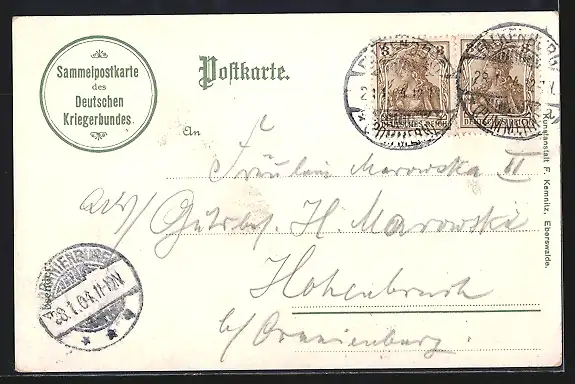 Sammelpostkarte
des
Deutschen
Kriegerbundes.
Postkarte.
An
Fräulein Marowska II
Gutsbes. H. Marowski
Hohenbruch
b/ Oranienburg.
Kunstanstalt F. Kemnitz, Eberswalde.
3 3
DEUTSCHES REICH
DEUTSCHES REICH
ORANIENBURG
28.1.04.11-12V.